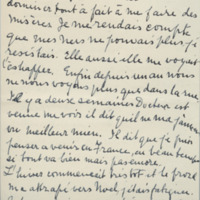 dominer tout à fait à me faire des
misères. Je me rendais compte
que mes ners ne pouvais plus y
resestais. Elle aussi elle me voyait
s'eshapper. Enfin depuis un an nous
ne nous voyons plus que dans la rue
Il y a deux semaines Docteur est
venue me voir il dit qu'il ne m'a jamais
vu meilleur mien. Il dit que je puis
penser a venir en France, au beau temps
se bout va bien mais pas encore.
L'hiver commencait bis tot et le froid
m'a attrapé vers Noel j'étais fatiguee.